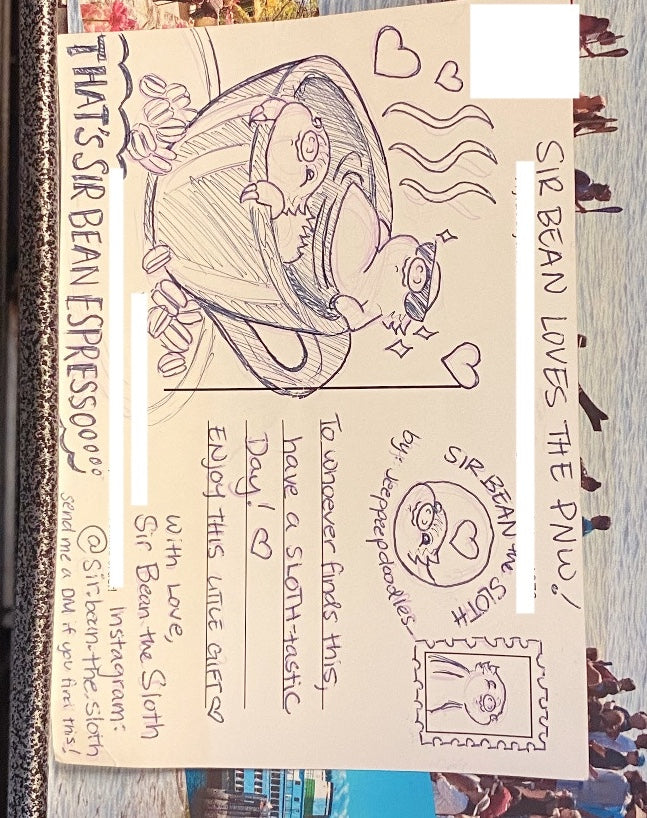 SIR BEAN LOVES THE PNW!
SIR BEAN the SLOTH
by: Jeeppeepdoodles_
To whoever finds this,
have a SLOTH-tastic
Day! ♡
ENJOY THIS LITTLE GIFT ♡
With Love,
Sir Bean the Sloth
Instagram:
@Sir.bean.the.sloth
send me a DM if you find this!
THAT'S SIR BEAN ESPRESSOoooo